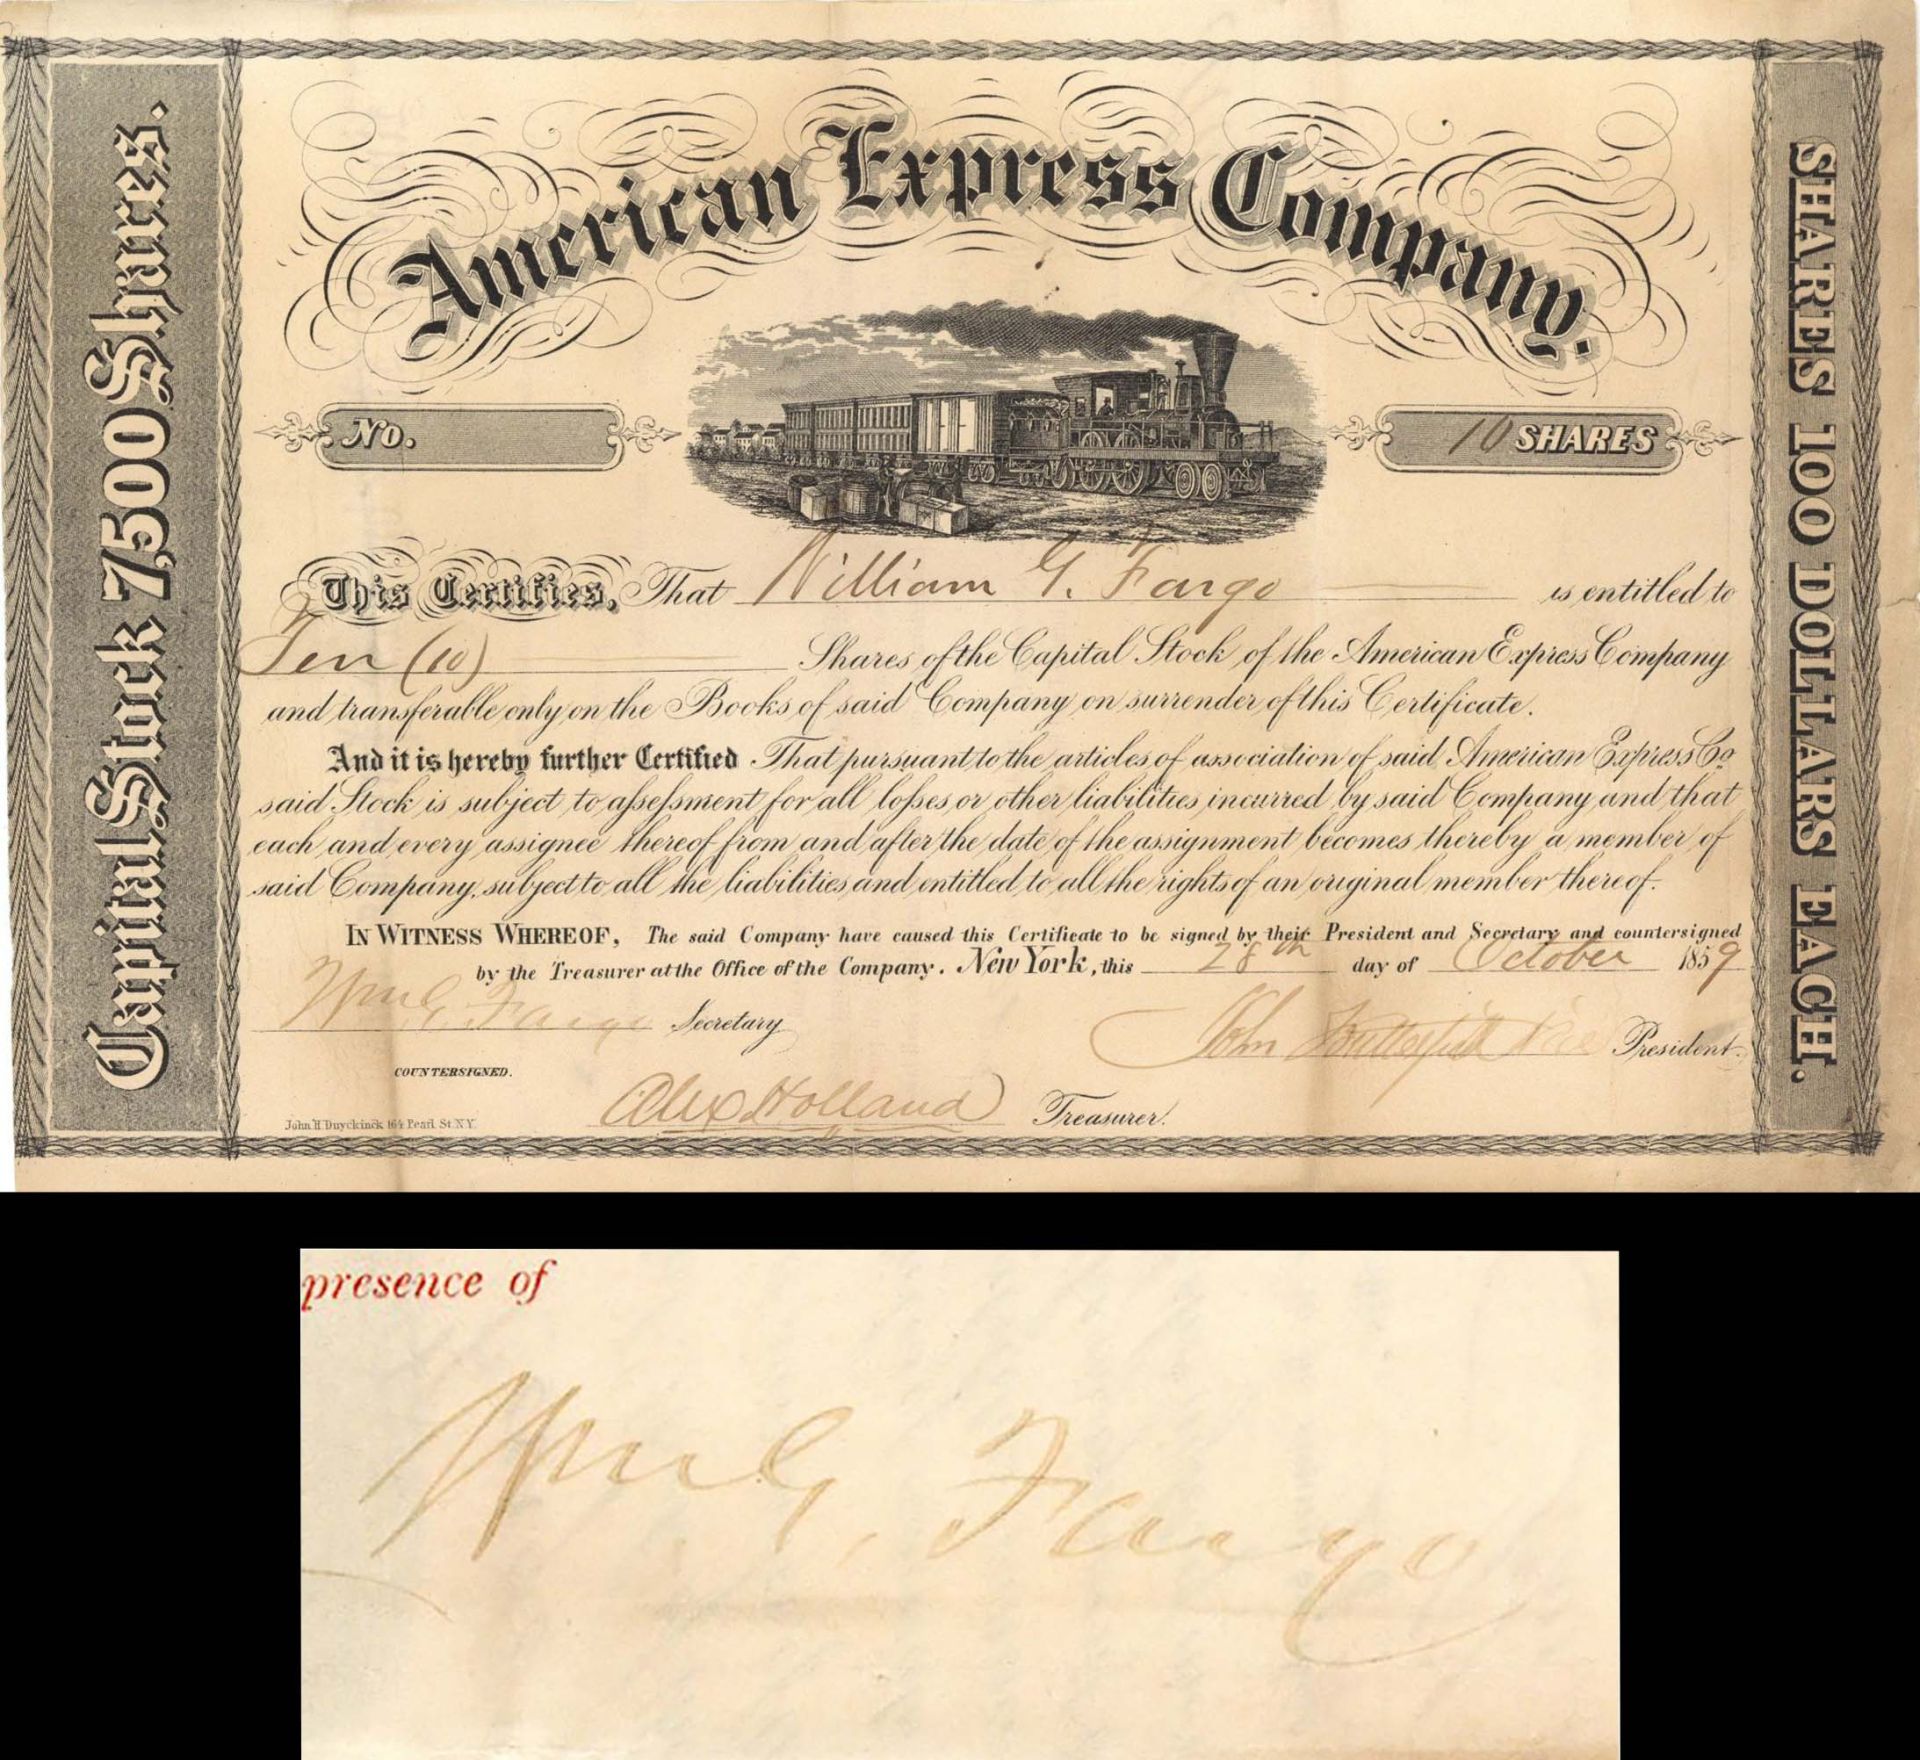 American Express Company.
Capital Stock 7,500 Shares.
SHARES 100 DOLLARS EACH.
No.
10 SHARES
This Certifies, That William G. Fargo is entitled to
Ten (10) Shares of the Capital Stock of the American Express Company
and transferable only on the Books of said Company on surrender of this Certificate.
And it is hereby further Certified That pursuant to the articles of association of said American Express Co
said Stock is subject to assessment for all losses or other liabilities incurred by said Company and that
each and every assignee thereof from and after the date of the assignment becomes thereby a member of
said Company, subject to all the liabilities and entitled to all the rights of an original member thereof.
IN WITNESS WHEREOF, The said Company have caused this Certificate to be signed by their President and Secretary and countersigned
by the Treasurer at the Office of the Company. New York, this 28th day of October 1859
Wm G. Fargo Secretary
John Butterfield Vice President.
COUNTERSIGNED.
Alex Holland Treasurer.
John H Duyckinck 164 Pearl St. N.Y.
presence of
Wm G. Fargo